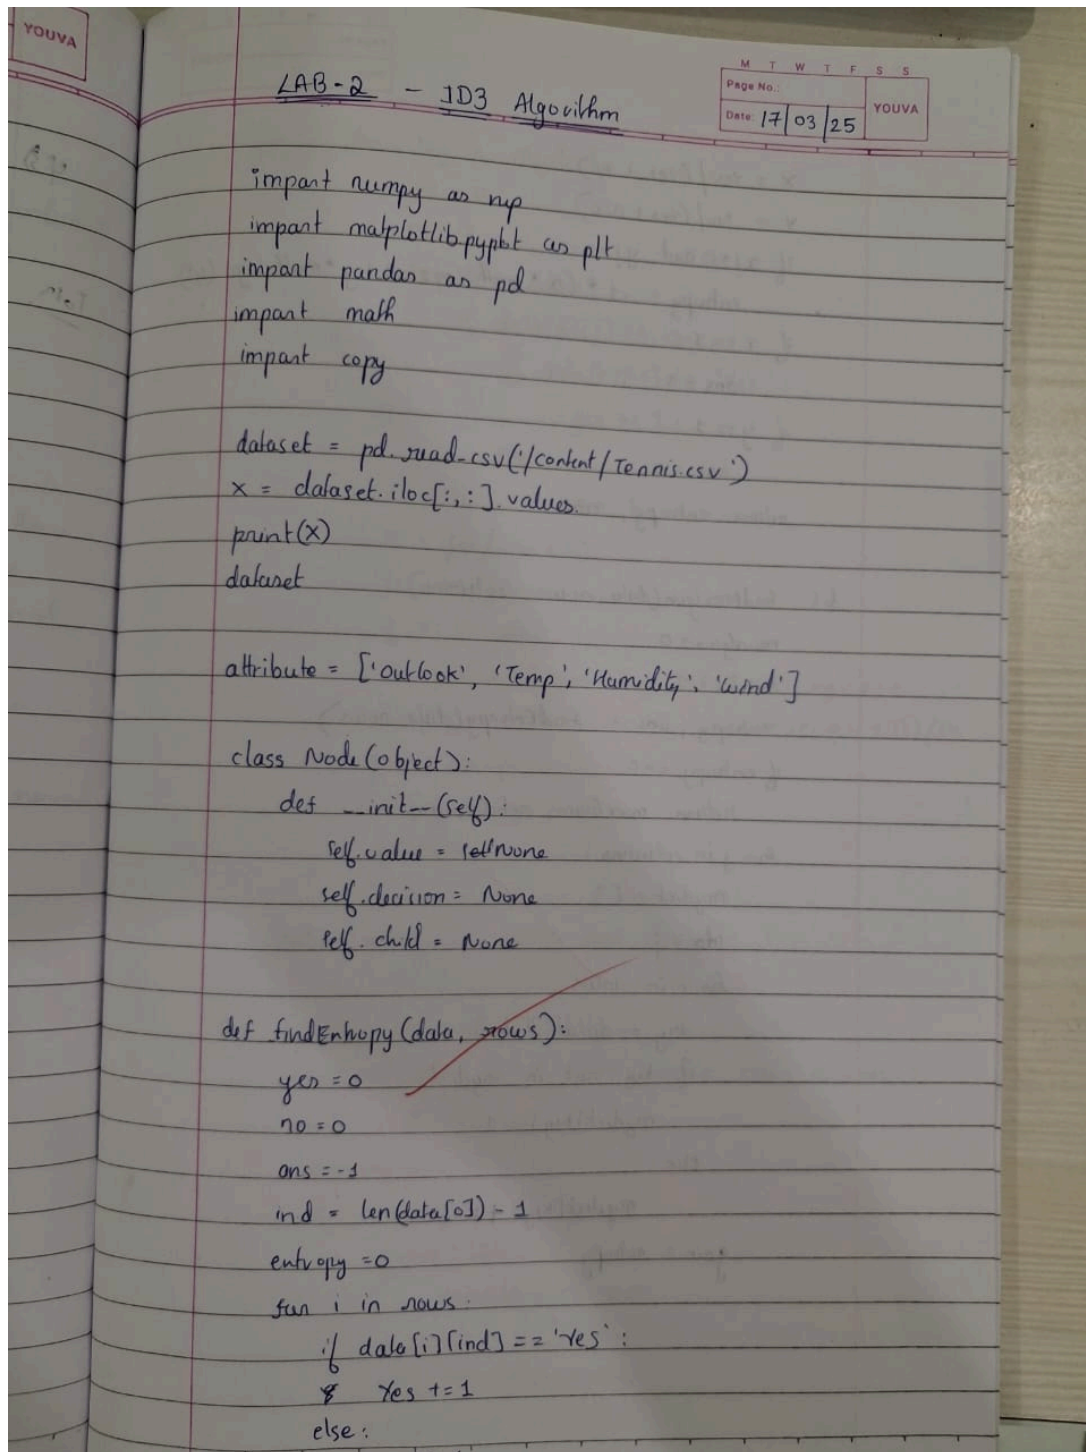 YOUVA
M T W T F S S
Page No.:
YOUVA
Date: 17/03/25
LAB-2 - ID3 Algorithm
import numpy as np
import matplotlib.pyplot as plt
import pandas as pd
import math
import copy
dataset = pd.read_csv('/content/Tennis.csv')
x = dataset.iloc[:,:].values.
print(x)
dataset
attribute = ['outlook', 'Temp', 'Humidity', 'wind']
class Node(object):
def __init__(self):
self.value = None
self.decision = None
self.child = None
def findEntropy(data, rows):
yes = 0
no = 0
ans = -1
ind = len(data[0]) - 1
entropy = 0
for i in rows:
if data[i][ind] == 'Yes':
Yes += 1
else: